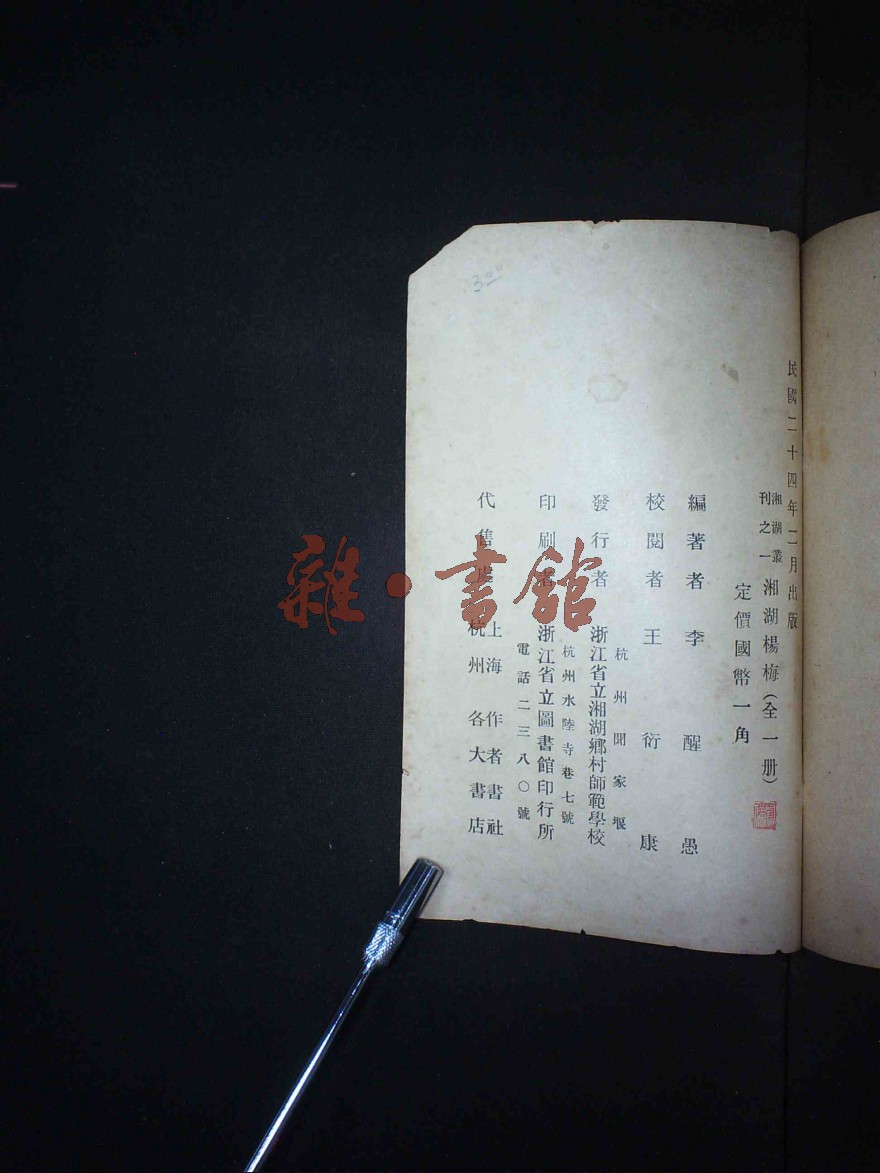 民國二十四年二月出版
湘湖叢刊之一 湘湖楊梅(全一册)
定價國幣一角
編著者 李醒愚
校閱者 王衍康
杭州聞家堰
發行者 浙江省立湘湖鄉村師範學校
杭州水陸寺巷七號
印刷者 浙江省立圖書館印行所
電話二三八〇號
上海作者書社
代售處 杭州各大書店
3.00
雜·書館